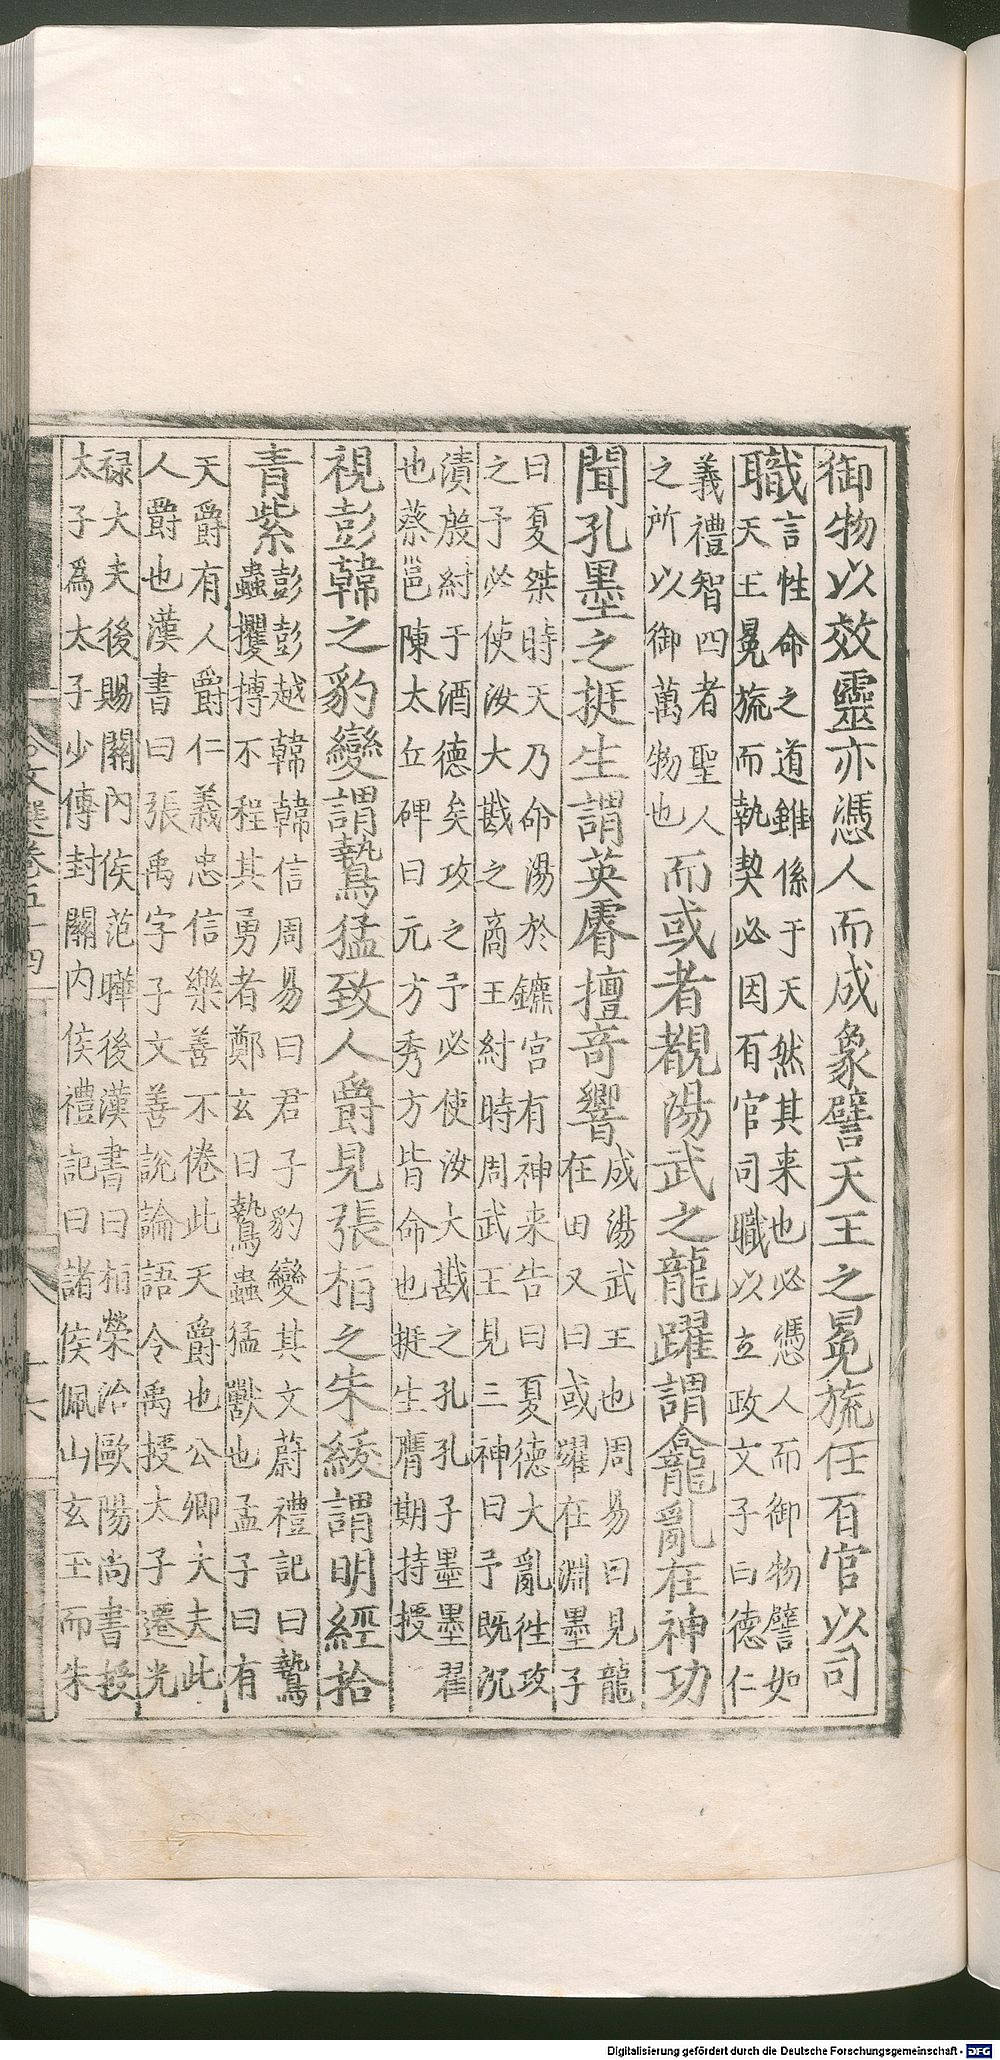 御物以效靈亦憑人而成象譬天王之冕旒任百官以司
職
言性命之道雖係于天然其来也必憑人而御物譬如
天王冕旒而執契必因百官司職以立政文子曰德仁
義禮智四者聖人
之所以御萬物也
而或者覩湯武之龍躍謂龕亂在神功
聞孔墨之挺生謂英睿擅奇響
成湯武王也周易曰見龍
在田又曰或躍在淵墨子
曰夏桀時天乃命湯於鑣宫有神来告曰夏德大亂徃攻
之予必使汝大戡之商王紂時周武王見三神曰予既沉
漬殷紂于酒德矣攻之予必使汝大戡之孔孔子墨墨翟
也蔡邕陳太丘碑曰元方秀方皆命也挺生膺期持授
視彭韓之豹變謂鷙猛致人爵見張桓之朱綬謂明經拾
青紫
彭彭越韓韓信周易曰君子豹變其文蔚禮記曰鷙
蟲攫搏不程其勇者鄭玄曰鷙蟲猛獸也孟子曰有
天爵有人爵仁義忠信樂善不倦此天爵也公卿大夫此
人爵也漢書曰張禹字子文善說論語令禹授太子遷光
禄大夫後賜關内侯范曄後漢書曰桓榮治歐陽尚書授
太子爲太子少傅封關内侯禮記曰諸侯佩山玄玉而朱
文選卷五十四
十六
Digitalisierung gefördert durch die Deutsche Forschungsgemeinschaft - DFG